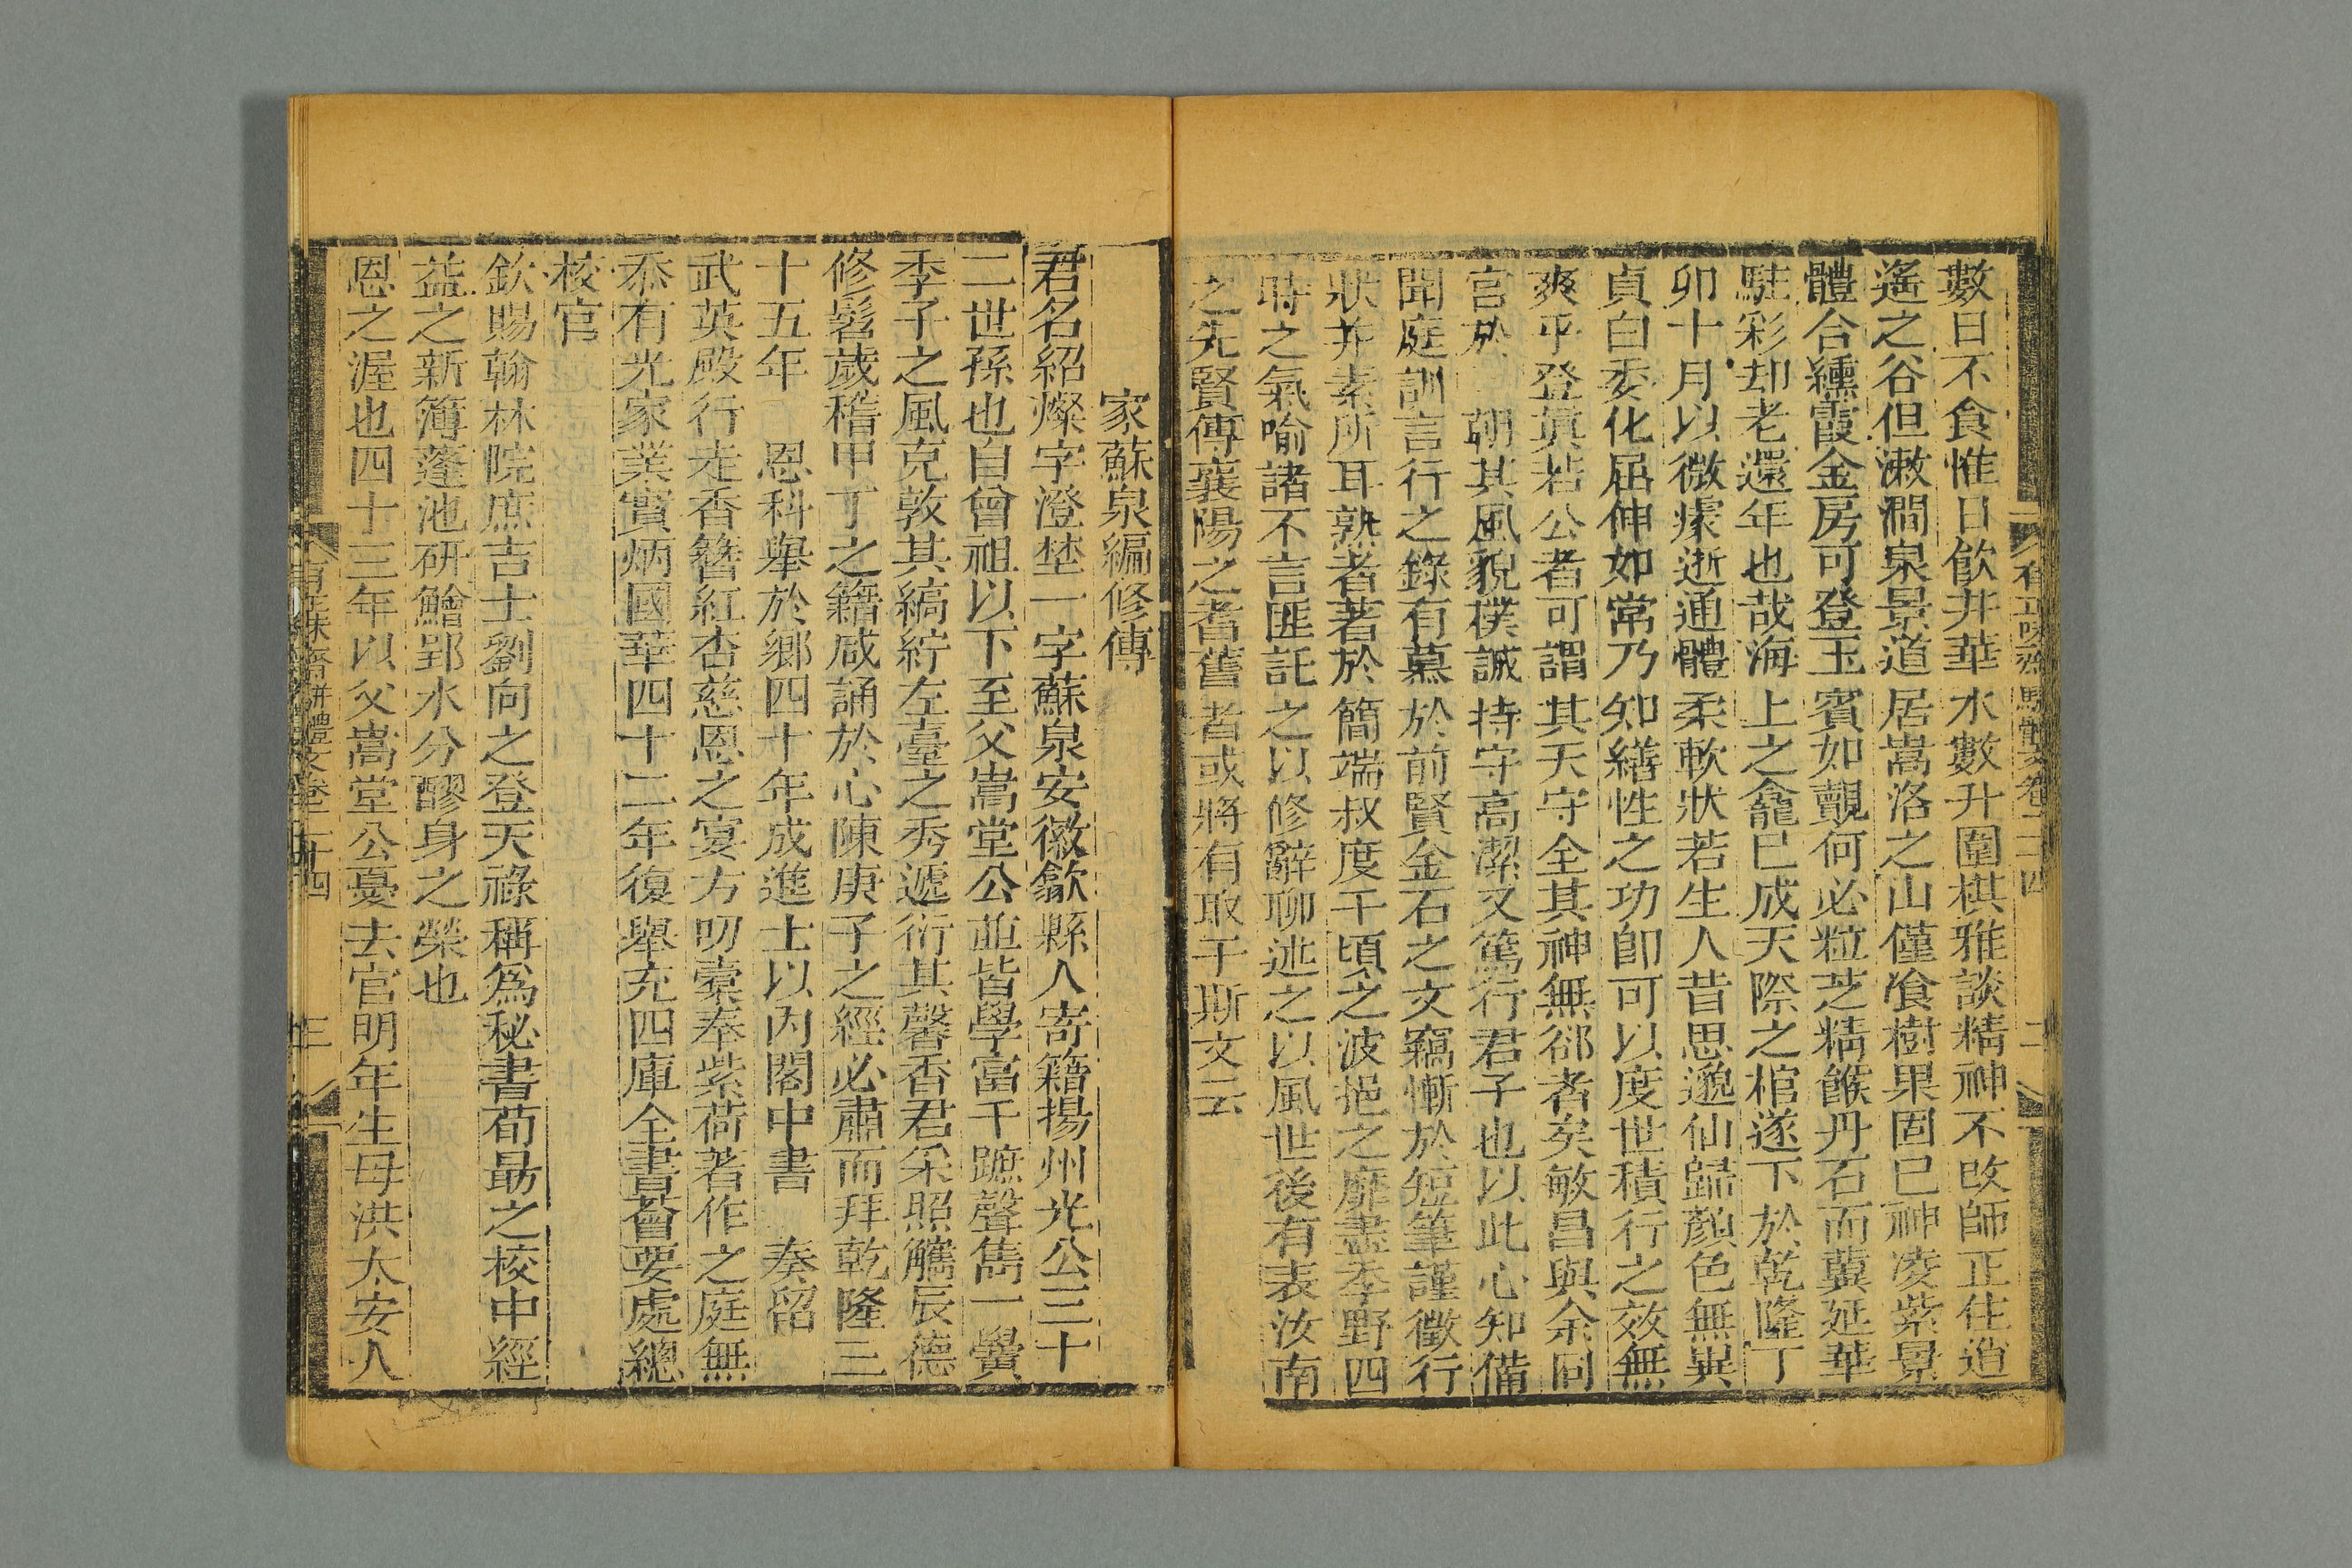 數日不食惟日飲井華水數升圍棋雅談精神不改師正住逍
遙之谷但漱澗泉景道居嵩洛之山僅飡樹果固已神凌紫景
體合纁霞金房可登玉賓如覿何必粒芝精餱丹石而冀延華
駐彩却老還年也哉海上之龕已成天際之棺遂下於乾隆丁
卯十月以微瘝逝通體柔軟狀若生人昔思邈仙歸顏色無異
貞白委化屈伸如常乃知繕性之功卽可以度世積行之效無
爽乎登眞若公者可謂其天守全其神無郤者矣敏昌與余同
官於 朝其風貌樸誠持守高潔又篤行君子也以此心知備
聞庭訓言行之錄有慕於前賢金石之文竊慚於短筆謹徵行
狀并素所耳熟者著於簡端叔度千頃之波挹之靡盡季野四
時之氣喻諸不言匪託之以修辭聊述之以風世後有表汝南
之先賢傳襄陽之耆舊者或將有取于斯文云
家蘇泉編修傳
君名紹燦字澄埜一字蘇泉安徽歙縣人寄籍揚州光公三十
二世孫也自曾祖以下至父嵩堂公並皆學富千蹠聲雋一黌
季子之風克敦其縞紵左臺之秀遞衍其馨香君采照觿辰德
修髫歲稽甲丁之籍咸誦於心陳庚子之經必肅而拜乾隆三
十五年 恩科舉於鄉四十年成進士以內閣中書 奏留
武英殿行走香簪紅杏慈恩之宴方叨橐奉紫荷著作之庭無
忝有光家業實炳國華四十二年復舉充四庫全書薈要處總
校官
欽賜翰林院庶吉士劉向之登天祿稱爲秘書荀勗之校中經
益之新簿蓬池研鱠郢水分醪身之榮也
恩之渥也四十三年以父嵩堂公憂去官明年生母洪太安人
有正味齋駢體文卷二十四 三